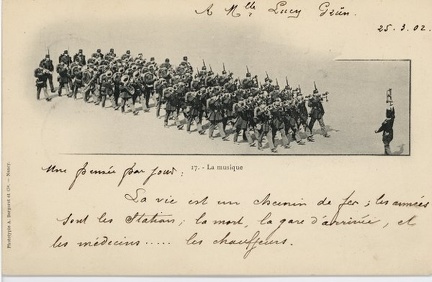 A Mlle Lucy Grün
25.3.02.
17. - La musique
Phototypie A. Bergeret et Cie. - Nancy
Une pensée par jour:
La vie est un chemin de fer; les années
sont les Stations; la mort, la gare d'arrivée, et
les médecins..... les chauffeurs.